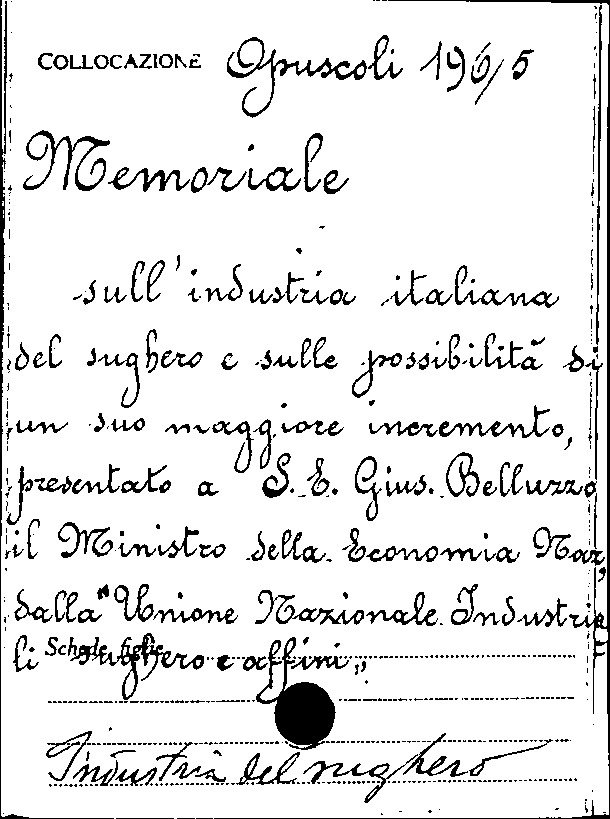 COLLOCAZIONE Opuscoli 196/5
Memoriale
sull'industria italiana
del sughero e sulle possibilità di
un suo maggiore incremento,
presentato a S. E. Gius. Belluzzo
il Ministro della Economia Naz,
dalla "Unione Nazionale Industria=
li sughero e affini„
Schede figlie
Industria del sughero